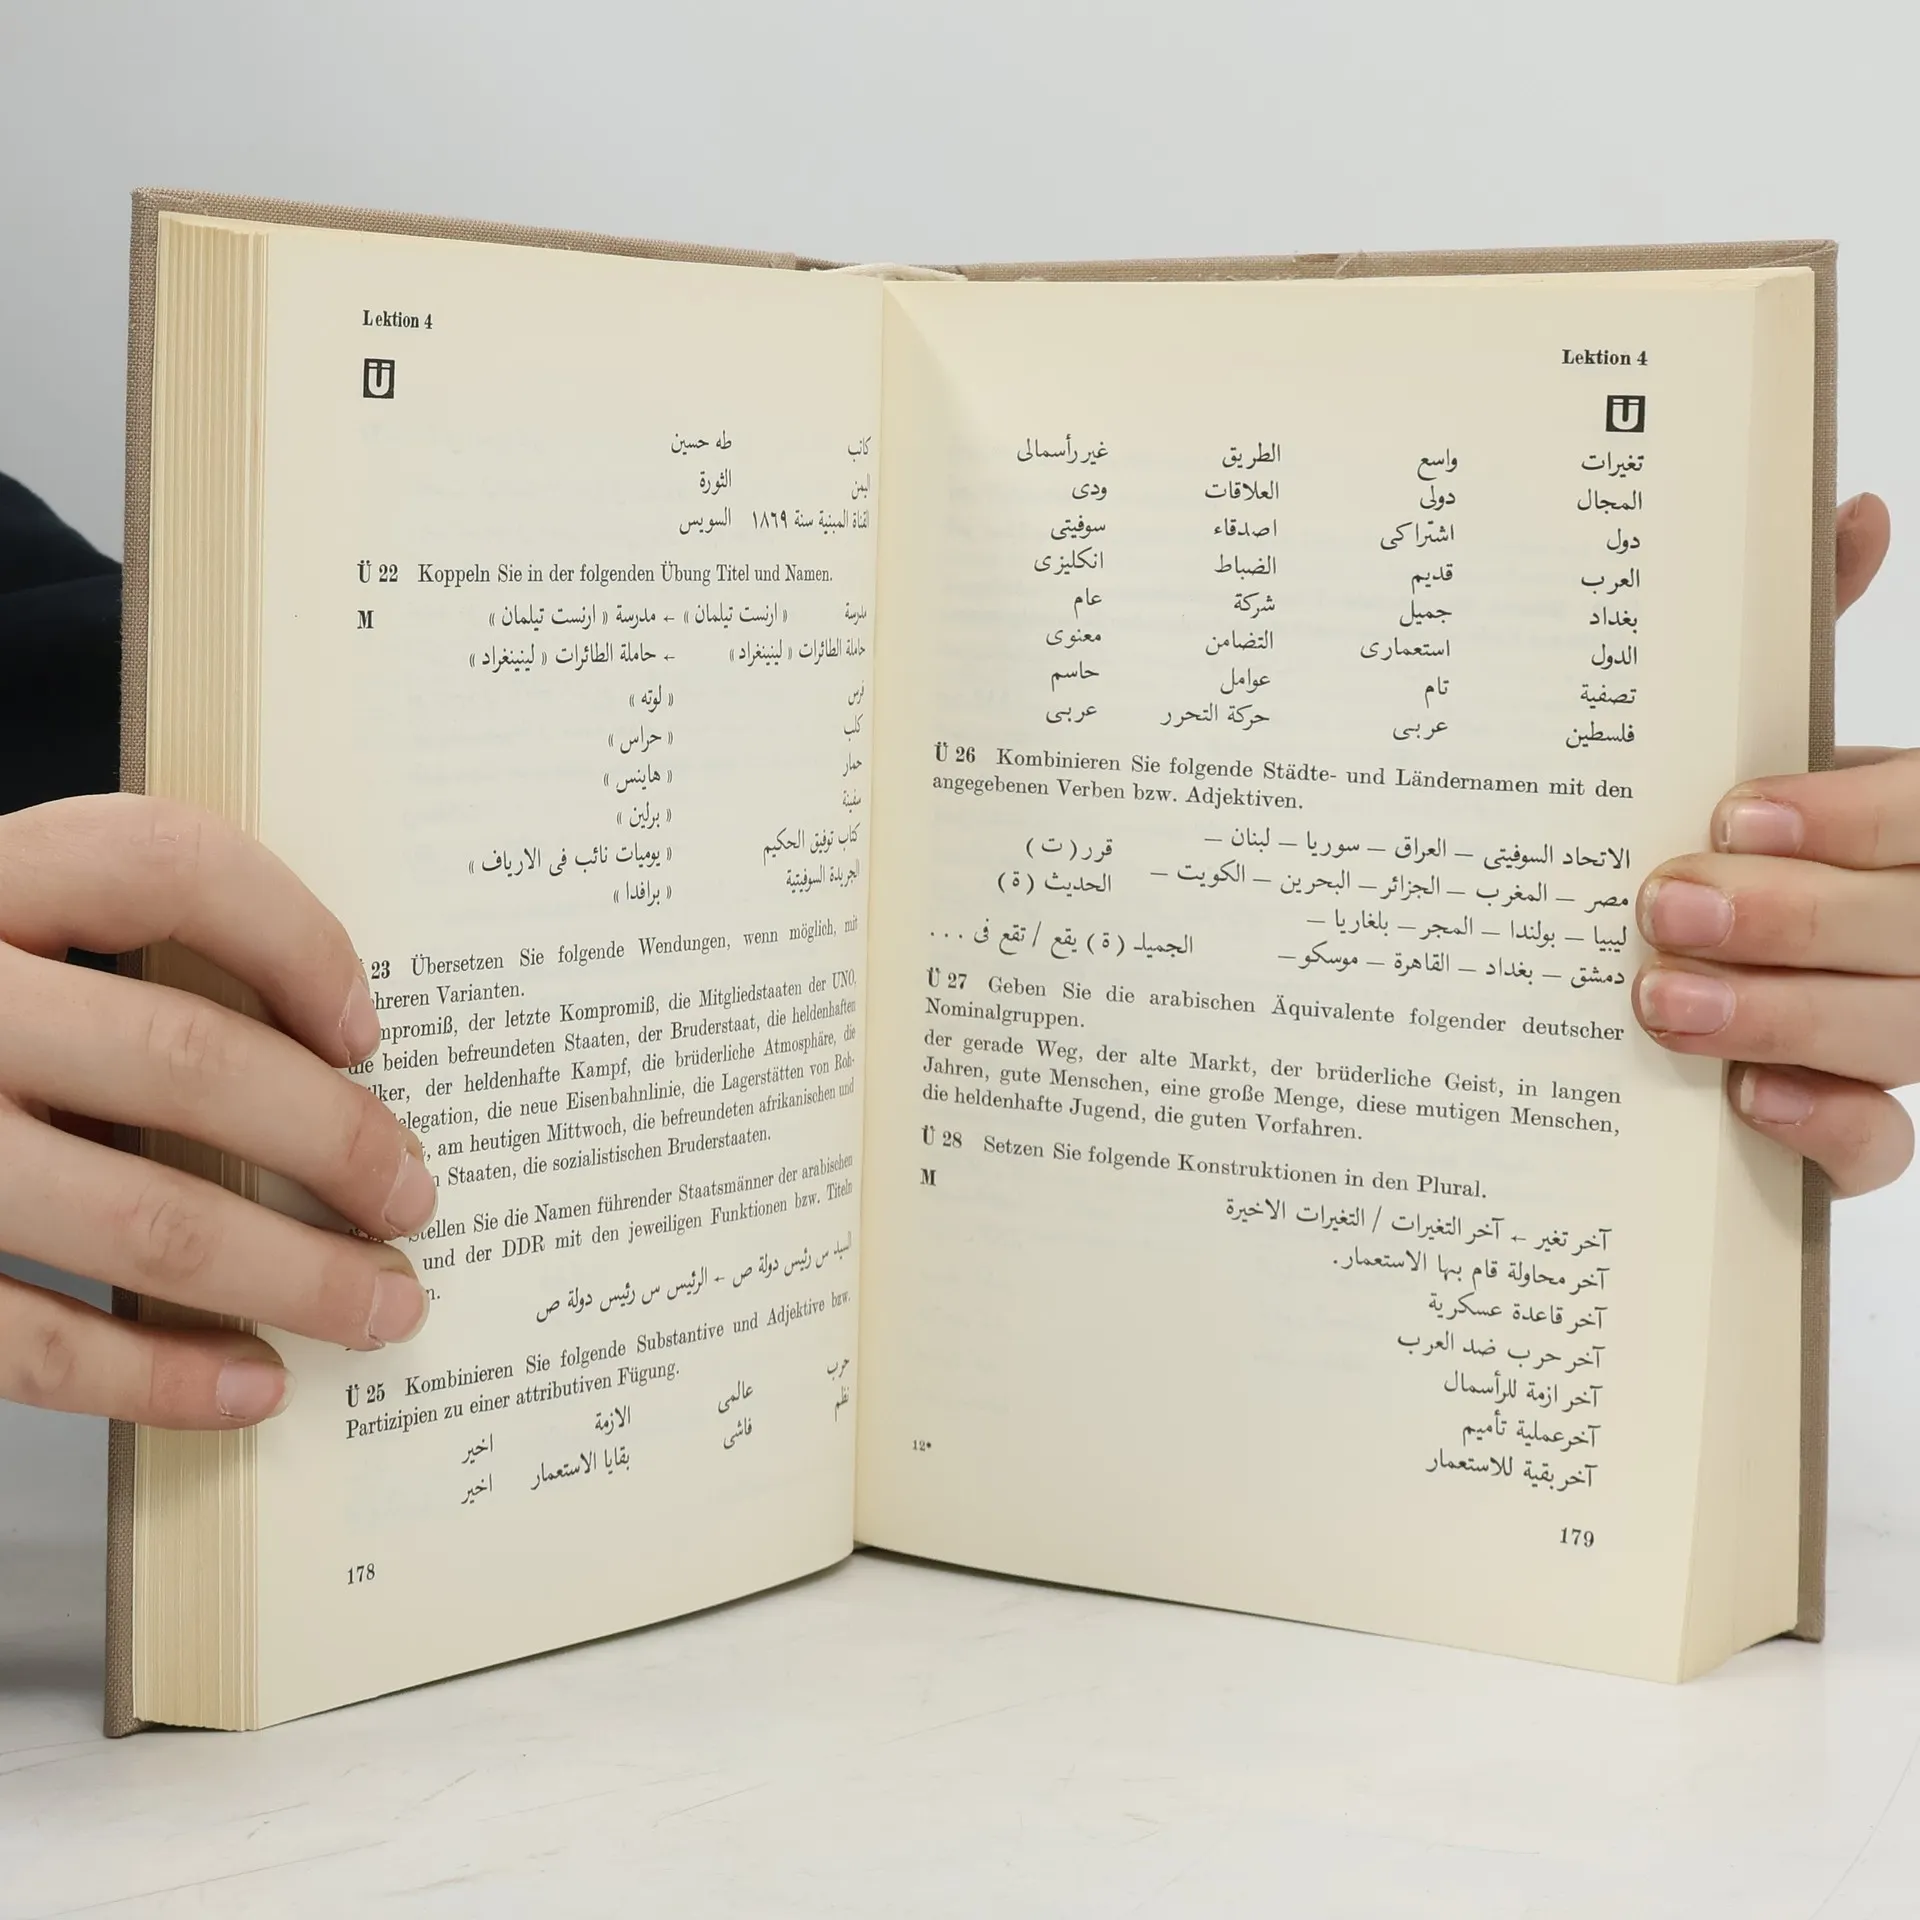 Lektion 4
Ü
كاتب طه حسين
اليمن الثورة
القناة المبنية سنة ١٨٦٩ السويس
Ü 22 Koppeln Sie in der folgenden Übung Titel und Namen.
M مدرسة « ارنست تيلمان » ← مدرسة « ارنست تيلمان »
حاملة الطائرات « لينينغراد » ← حاملة الطائرات « لينينغراد »
فرس « لوته »
كلب « حراس »
حمار « هاينس »
سفينة « برلين »
كتاب توفيق الحكيم « يوميات نائب فى الارياف »
الجريدة السوفيتية « برافدا »
23 Übersetzen Sie folgende Wendungen, wenn möglich, mit
hreren Varianten.
mpromiß, der letzte Kompromiß, die Mitgliedstaaten der UNO,
die beiden befreundeten Staaten, der Bruderstaat, die heldenhaften
lker, der heldenhafte Kampf, die brüderliche Atmosphäre, die
elegation, die neue Eisenbahnlinie, die Lagerstätten von Roh-
, am heutigen Mittwoch, die befreundeten afrikanischen und
n Staaten, die sozialistischen Bruderstaaten.
Stellen Sie die Namen führender Staatsmänner der arabischen
und der DDR mit den jeweiligen Funktionen bzw. Titeln
n.
السيد س رئيس دولة ص ← الرئيس س رئيس دولة ص
Ü 25 Kombinieren Sie folgende Substantive und Adjektive bzw.
Partizipien zu einer attributiven Fügung.
حرب عالمى الازمة اخير
نظم فاشى بقايا الاستعمار اخير
178
Lektion 4
Ü
تغيرات واسع الطريق غير رأسمالى
المجال دولى العلاقات ودى
دول اشتراكى اصدقاء سوفيتى
العرب قديم الضباط انكليزى
بغداد جميل شركة عام
الدول استعمارى التضامن معنوى
تصفية تام عوامل حاسم
فلسطين عربى حركة التحرر عربى
Ü 26 Kombinieren Sie folgende Städte- und Ländernamen mit den
angegebenen Verben bzw. Adjektiven.
الاتحاد السوفيتى – العراق – سوريا – لبنان – قرر ( ت )
مصر – المغرب – الجزائر – البحرين – الكويت – الحديث ( ة )
ليبيا – بولندا – المجر – بلغاريا –
دمشق – بغداد – القاهرة – موسكو – الجميلـ ( ة ) يقع / تقع فى ...
Ü 27 Geben Sie die arabischen Äquivalente folgender deutscher
Nominalgruppen.
der gerade Weg, der alte Markt, der brüderliche Geist, in langen
Jahren, gute Menschen, eine große Menge, diese mutigen Menschen,
die heldenhafte Jugend, die guten Vorfahren.
Ü 28 Setzen Sie folgende Konstruktionen in den Plural.
M
آخر تغير ← آخر التغيرات / التغيرات الاخيرة
آخر محاولة قام بها الاستعمار.
آخر قاعدة عسكرية
آخر حرب ضد العرب
آخر ازمة للرأسمال
آخر عملية تأميم
آخر بقية للاستعمار
12*
179